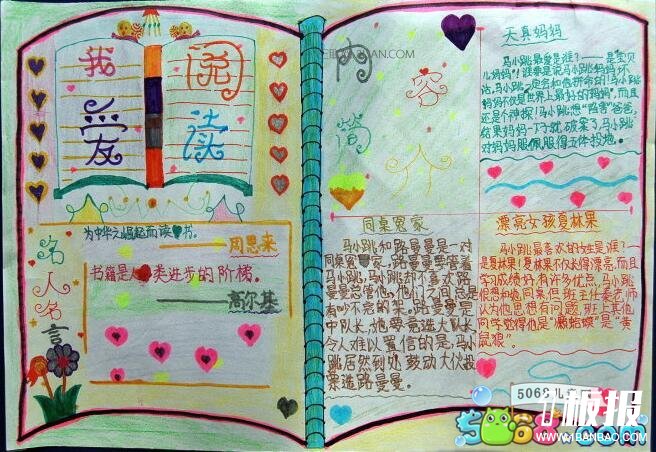 我
爱
阅
读
为中华之崛起而读书。
周恩来
书籍是人类进步的阶梯。
高尔基
名
人
名
言
内
容
简
介
天真妈妈
马小跳最爱是谁?——是宝贝
儿妈妈!谁要是说马小跳妈妈坏
话,马小跳一定会和他拼命的!马小跳
妈妈不仅是世界上最好的妈妈,而且
还是个神探!马小跳想“陷害”爸爸,
结果妈妈一下子就破案了,马小跳
对妈妈服佩服得五体投地。
同桌冤家
马小跳和路曼曼是一对
同桌冤家,路曼曼要管着
马小跳,马小跳却不喜欢路
曼曼总管他,他们之间总是
有吵不完的架。路曼曼是
中队长,她要竞选大队长,
令人难以置信的是,马小
跳居然到处鼓动大伙投
票选路曼曼
漂亮女孩夏林果
马小跳最喜欢的女生是谁?—
是夏林果!夏林果不仅长得漂亮,而且
学习成绩好,有许多优点,马小跳
很想和她同桌,但班主任秦老师
认为他思想有问题,班上其他
同学觉得他是“癞蛤蟆”是“黄
鼠狼”。
5068儿
板报
5068.com
WWW.1BANBAO.COM